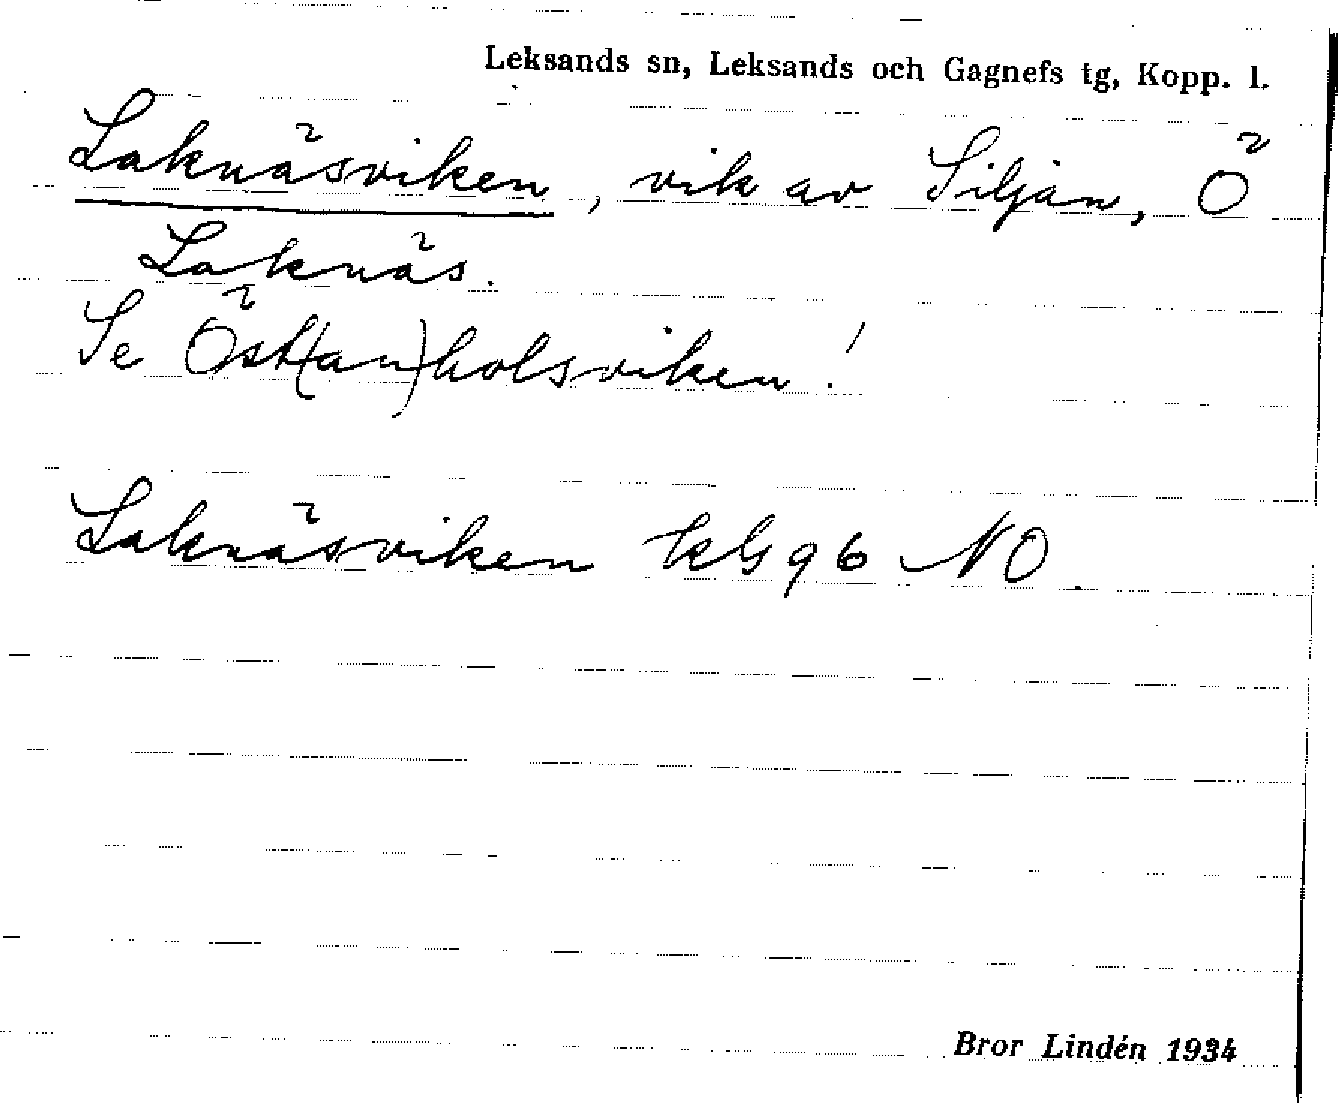 Leksands sn, Leksands och Gagnefs tg, Kopp. l.
Laknäsviken, vik av Siljan, Ö
Laknäs.
Se Öst(an)holsviken!
Laknäsviken kbg 96 NO.
Bror Lindén 1934